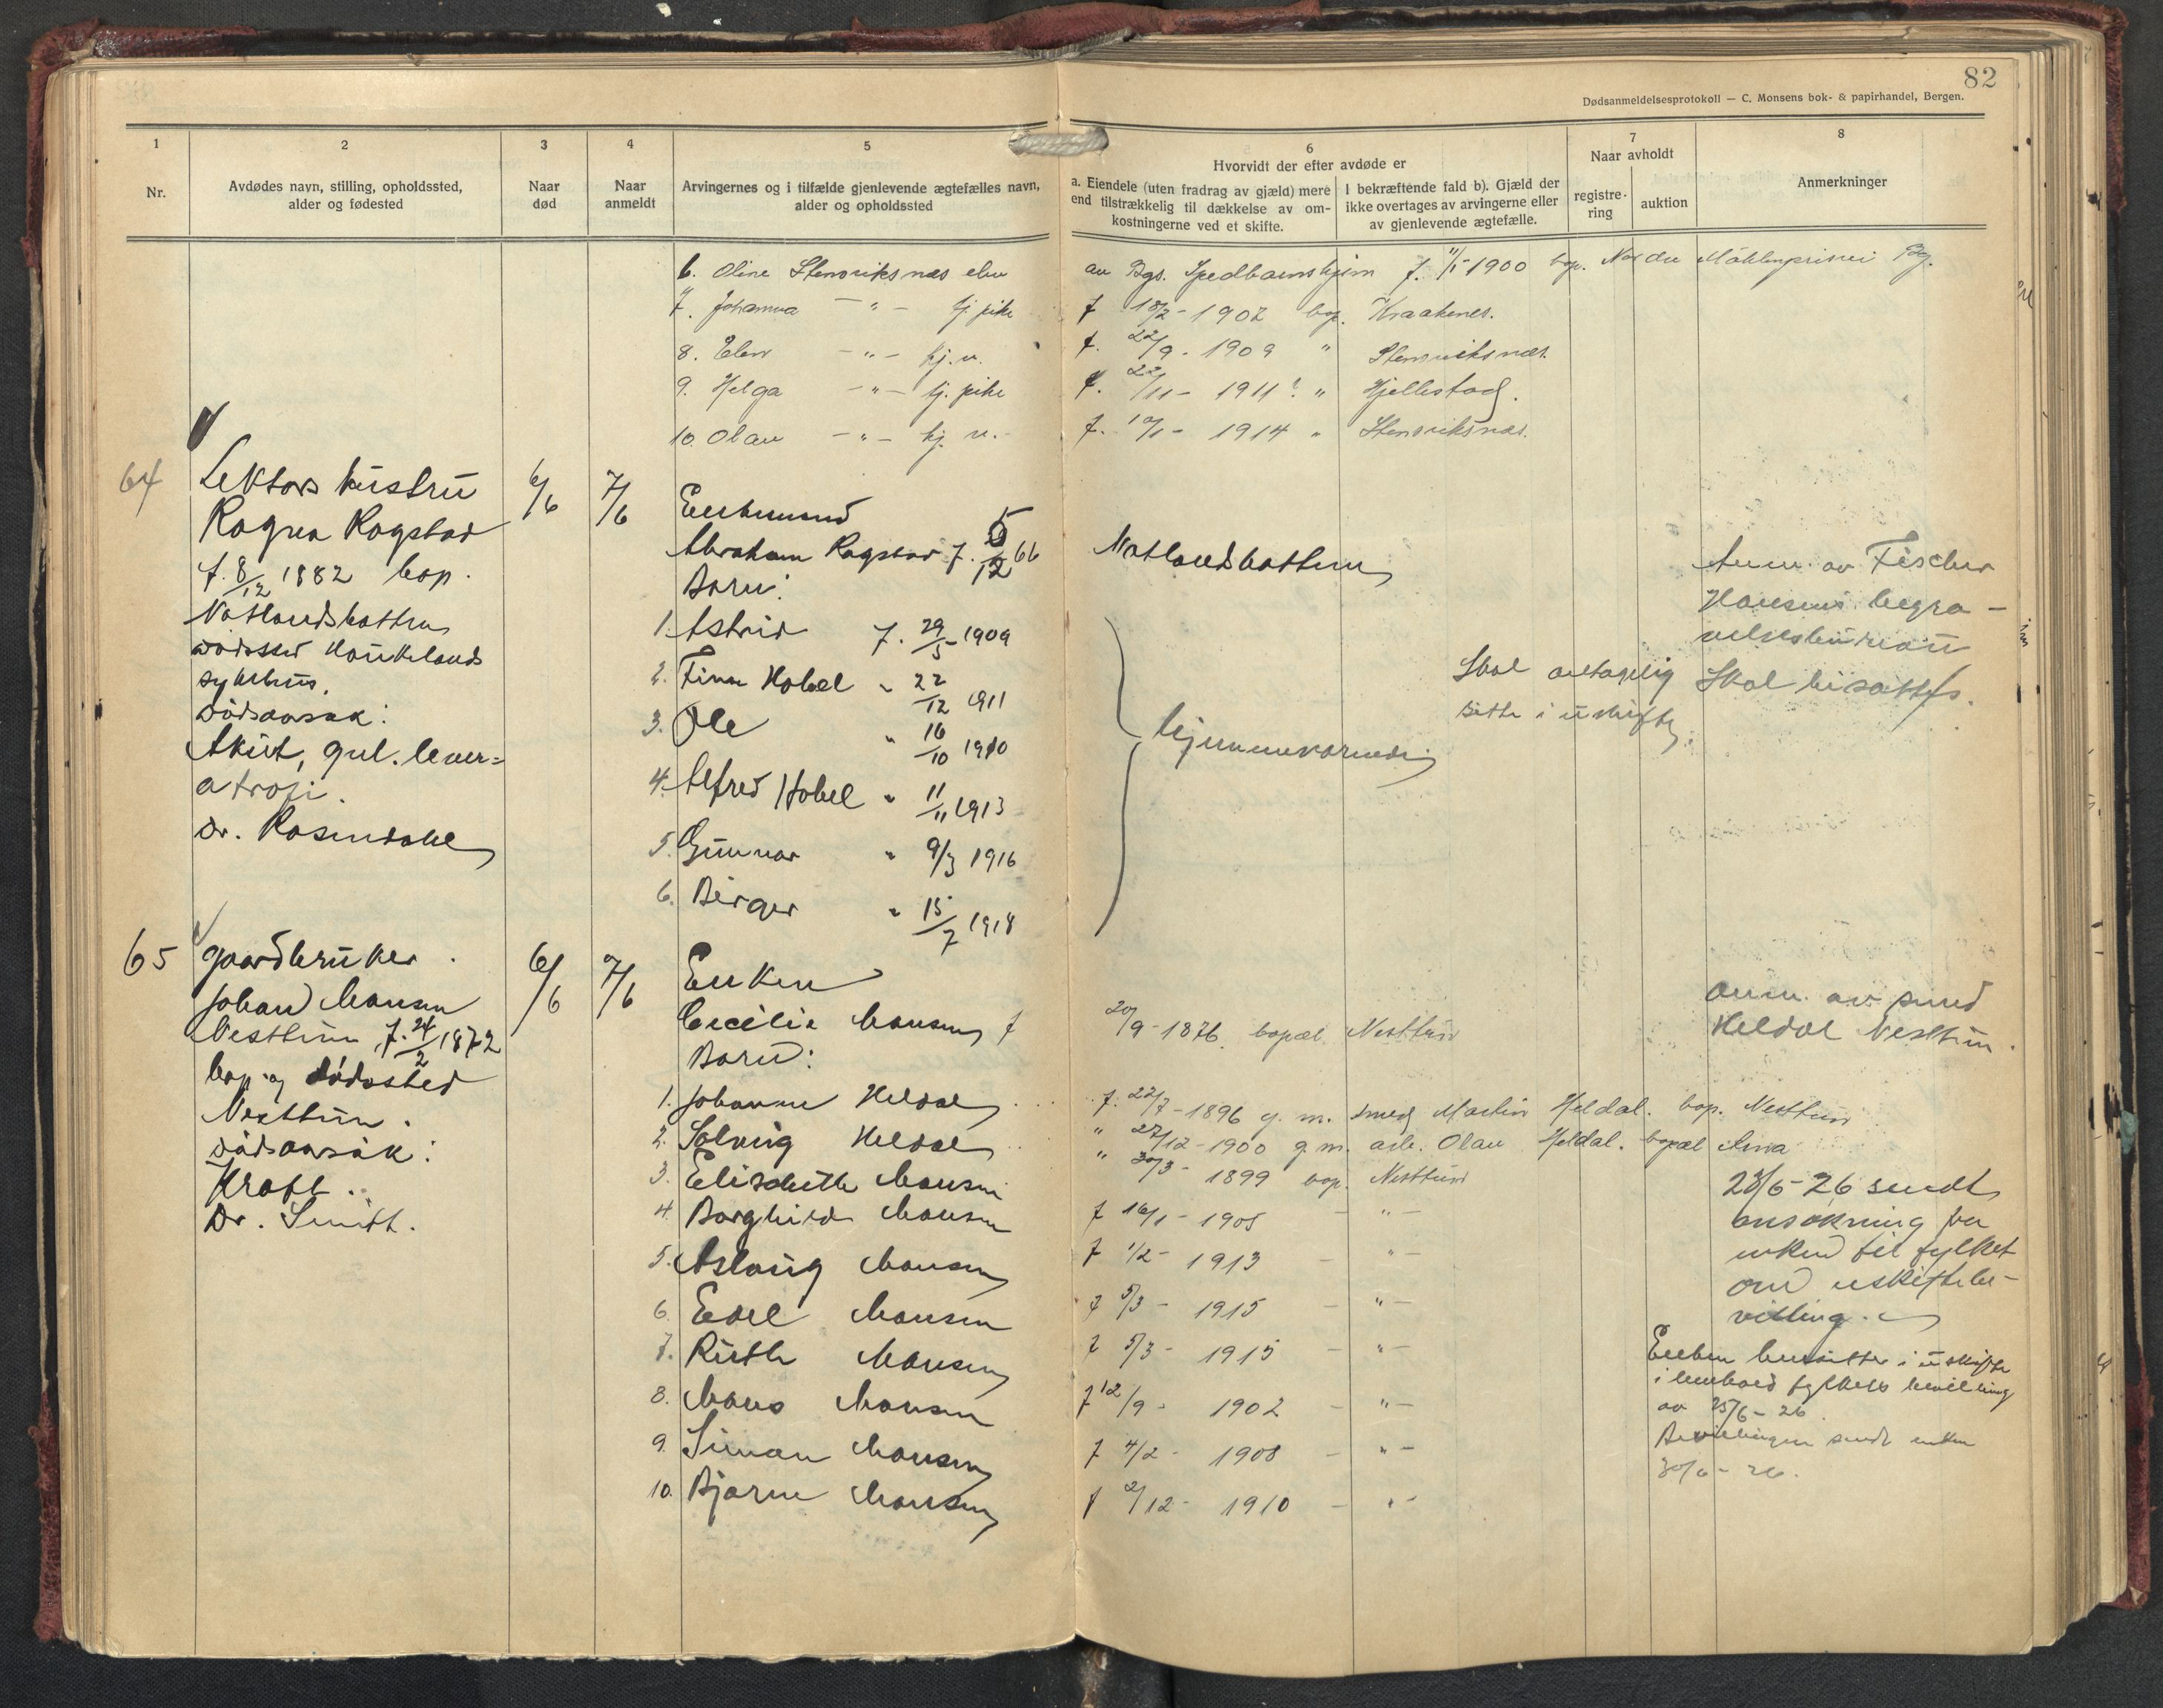 82
Dødsanmeldelsesprotokoll — C. Monsens bok- & papirhandel, Bergen.
1
Nr.
2
Avdødes navn, stilling, opholdssted,
alder og fødested
3
Naar
død
4
Naar
anmeldt
5
Arvingernes og i tilfælde gjenlevende ægtefælles navn,
alder og opholdssted
6
Hvorvidt der efter avdøde er
a. Eiendele (uten fradrag av gjæld) mere
end tilstrækkelig til dækkelse av om-
kostningerne ved et skifte.
I bekræftende fald b). Gjæld der
ikke overtages av arvingerne eller
av gjenlevende ægtefælle.
7
Naar avholdt
registre-
ring
auktion
8
Anmerkninger
6. Oline Stensviksnæs elev av Bgs. Spedbarnshjem f. 11/5 1900 bop. Møhlenpris Bg.
7. Johanna — " — tj. pike f 18/2 - 1907 bop. Kraakenes.
8. Elen — " — hj. v. f. 22/9 - 1909 " Stensviksnæs.
9. Helga — " — tj. pike f. 22/11 - 1911? " Hjellestad.
10. Olav — " — hj. v. f. 10/1 - 1914 " Stensviksnæs.
64
Lektors hustru
Ragna Rogstad
f. 8/12 1882 bop.
Natlandsbotten
dødssted Haukelands
sykehus.
dødsaarsak:
Akut, gul. lever=
atrofi.
Dr. Rosendahl
6/6
7/6
Enkemand
Abraham Rogstad f. 5/12 66 Natlandsbotten
Barn:
1. Astrid f. 29/5 1909
2. Finn Hobel " 22/12 1911
3. Ole " 16/10 1910
4. Alfred Hobel " 11/11 1913
5. Gunnar " 9/3 1916
6. Birger " 15/7 1918
hjemmeværende
Skal antagelig
sitte i uskifte.
Anm. av Fischer
Hansens begra-
velsesbureau
Skal bisættes.
65
Gaardbruker
Johan Monsen
Nesttun, f. 24/2 1872
bop. og dødssted
Nesttun.
dødsaarsak:
Kræft.
Dr. Smith.
6/6
7/6
Enken
Cecilie Monsen f 20/9 - 1876. bopæl Nesttun
Barn:
1. Johanne Heldal f. 22/7 - 1896 g. m. smed Martin Heldal. bop. Nesttun
2. Solveig Heldal " 27/12 - 1900 g. m. arb. Olav Heldal. bopæl Arna
3. Elisabeth Monsen " 30/3 - 1899 bop. Nesttun
4. Borghild Monsen f 16/1 - 1905 — " —
5. Aslaug Monsen f 1/2 - 1913 — " —
6. Edel Monsen f 5/3 - 1915 — " —
7. Ruth Monsen f 5/3 - 1915 — " —
8. Mons Monsen f 12/9 - 1902 — " —
9. Simon Monsen f 4/2 - 1908 — " —
10. Bjarne Monsen f 2/12 - 1910 — " —
anm. av smed
Heldal Nesttun.
23/6 - 26 sendt
ansøkning fra
enken til fylket
om uskiftebe-
villing.
Enken hensitter i uskifte
i henhold fylkets bevilling
av 25/6 - 26.
Bevillingen sendt enken
30/6 - 26.